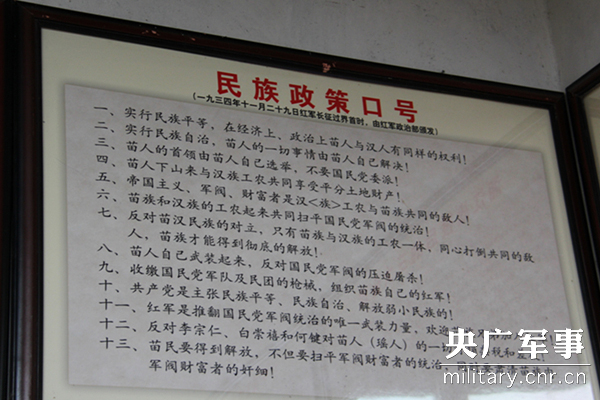 民族政策口号
(一九三四年十一月二十九日红军长征过界首时，由红军政治部颁发)
一、实行民族平等，在经济上、政治上苗人与汉人有同样的权利!
二、实行民族自治，苗人的一切事情由苗人自己解决!
三、苗人的首领由苗人自己选举，不要国民党委派!
四、苗人下山来与汉族工农共同享受平分土地财产!
五、帝国主义、军阀、财富者是汉<族>工农与苗族共同的敌人!
六、苗族和汉族的工农起来共同扫平国民党军阀的统治!
七、反对苗汉民族的对立，只有苗族与汉族的工农一体，同心打倒共同的敌
人，苗族才能得到彻底的解放!
八、苗人自己武装起来，反对国民党军阀的压迫屠杀!
九、收缴国民党军队及民团的枪械，组织苗族自己的红军!
十、共产党是主张民族平等、民族自治、解放弱小民族的!
十一、红军是推翻国民党军阀统治的唯一武装力量，欢迎
十二、反对李宗仁、白崇禧和何键对苗人（瑶人）的一切
十三、苗民要得到解放，不但要扫平军阀财富者的统治
军阀财富者的奸细!
央广军事
military.cnr.cn